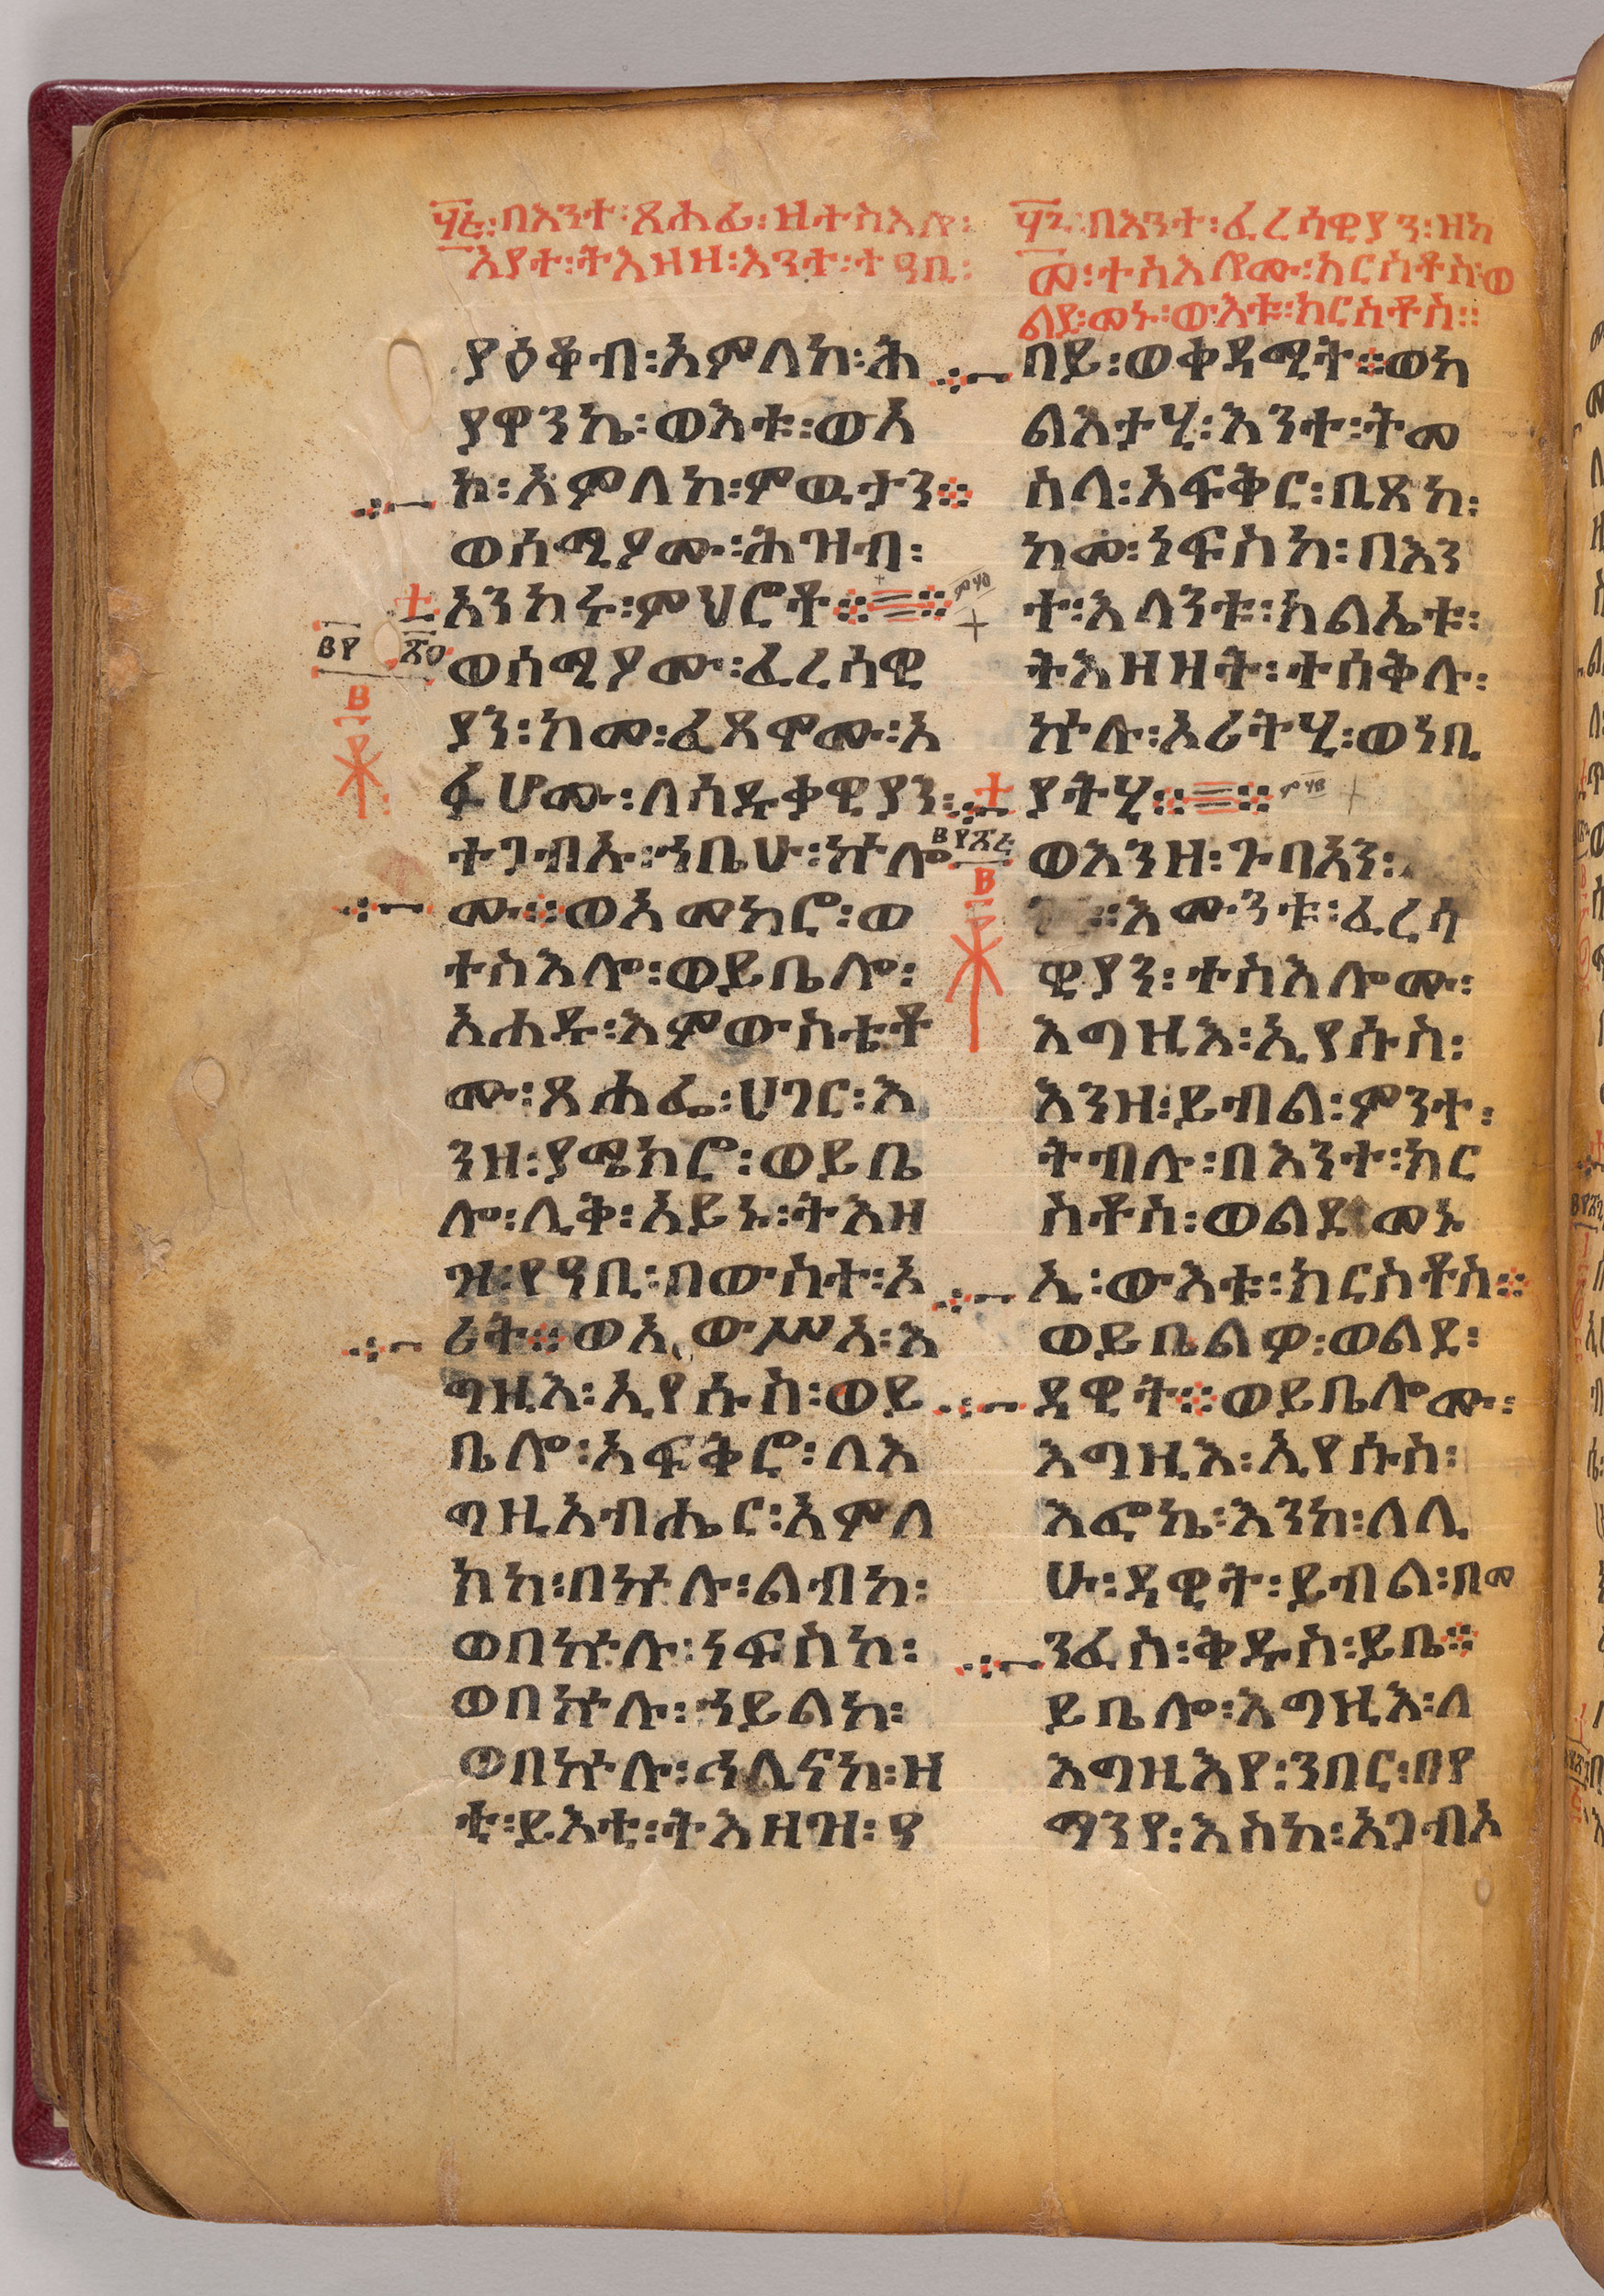 በእንተ፡ጸሐፊ፡ዘተስእሎ፡
አየተ፡ትእዘዘ፡እንተ፡ተዓቢ፡
ያዕቆብ፡አምላከ፡ሕ
ያዋንኬ፡ውእቱ፡ውእ
ኮ፡አምላከ፡ምዉታን።
ወሰሚዖሙ፡ሕዝብ፡
አንከሩ፡ምህሮቶ።
ወሰሚዖሙ፡ፈረሳዊ
ያን፡ከመ፡ፈጸሞሙ፡አ
ፉሆሙ፡ለሳዱቃዊያን፡
ተጋብኡ፡ኀቤሁ፡ኵሎ
ሙ።ወአመከሮ፡ወ
ተስእሎ፡ወይቤሎ፡
አሐዱ፡እምውስቴቶ
ሙ፡ጸሐፌ፡ሀገር፡እ
ንዘ፡ያሜክሮ፡ወይቤ
ሎ፡ሊቅ፡አይኑ፡ትእዛ
ዝ፡የዓቢ፡በውስተ፡ኦ
ሪት።ወአውሥአ፡እ
ግዚእ፡ኢየሱስ፡ወይ
ቤሎ፡አፍቅሮ፡ለእ
ግዚአብሔር፡አምላ
ከከ፡በኵሉ፡ልብከ፡
ወበኵሉ፡ነፍስከ፡
ወበኵሉ፡ኀይልከ፡
ወበኵሉ፡ኅሊናከ፡ዛ
ቲ፡ይእቲ፡ትእዛዝ፡ዓ
በእንተ፡ፈረሳዊያን፡ዘከ
መ፡ተስእሎሙ፡ክርስቶስ፡ወ
ልደ፡መኑ፡ውእቱ፡ክርስቶስ።
ባይ፡ወቀዳሚት።ወካ
ልእታሂ፡እንተ፡ትመ
ስላ፡አፍቅር፡ቢጸከ፡
ከመ፡ነፍስከ፡በእን
ተ፡እላንቱ፡ክልኤቱ፡
ትእዛዛት፡ተሰቅሉ፡
ኵሉ፡ኦሪትሂ፡ወነቢ
ያትሂ።
ወእንዘ፡ጉባአን፡
እሙንቱ፡ፈረሳ
ዊያን፡ተስእሎሙ፡
እግዚእ፡ኢየሱስ፡
እንዘ፡ይብል፡ምንተ፡
ትብሉ፡በእንተ፡ክር
ስቶስ፡ወልደ፡መኑ
ኢ፡ውእቱ፡ክርስቶስ።
ወይቤልዎ፡ወልደ፡
ዳዊት።ወይቤሎሙ፡
እግዚእ፡ኢየሱስ፡
እፎኬ፡እንከ፡ለሊ
ሁ፡ዳዊት፡ይብል፡በመ
ንፈስ፡ቅዱስ፡ይቤ።
ይቤሎ፡እግዚእ፡ለ
እግዚእየ፡ንበር፡በየ
ማንየ፡እስከ፡አገብእ